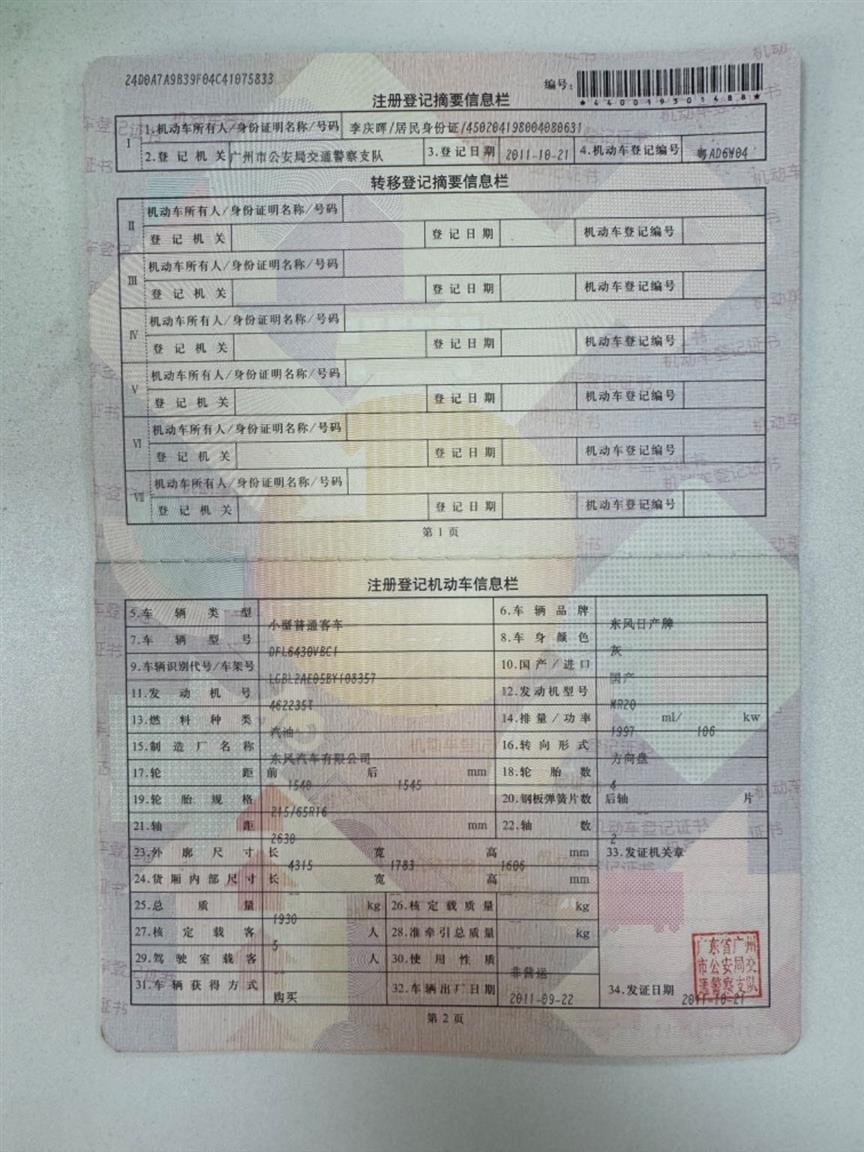 24D0A7A9B39F04C41075833
编号:
*440019301488*
注册登记摘要信息栏
I 1.机动车所有人/身份证明名称/号码 李庆晖/居民身份证/450204198004080631
2.登记机关 广州市公安局交通警察支队 3.登记日期 2011-10-21 4.机动车登记编号 粤AD6W04
转移登记摘要信息栏
II 机动车所有人/身份证明名称/号码
登记机关 登记日期 机动车登记编号
III 机动车所有人/身份证明名称/号码
登记机关 登记日期 机动车登记编号
IV 机动车所有人/身份证明名称/号码
登记机关 登记日期 机动车登记编号
V 机动车所有人/身份证明名称/号码
登记机关 登记日期 机动车登记编号
VI 机动车所有人/身份证明名称/号码
登记机关 登记日期 机动车登记编号
VII 机动车所有人/身份证明名称/号码
登记机关 登记日期 机动车登记编号
第1页
注册登记机动车信息栏
5.车辆类型 小型普通客车 6.车辆品牌 东风日产牌
7.车辆型号 DFL6430VBC1 8.车身颜色 灰
9.车辆识别代号/车架号 LGBL2AE05BY108357 10.国产/进口 国产
11.发动机号 462235T 12.发动机型号 MR20
13.燃料种类 汽油 14.排量/功率 1997 ml/ 106 kw
15.制造厂名称 东风汽车有限公司 16.转向形式 方向盘
17.轮距 前 1540 后 1545 mm 18.轮胎数 4
19.轮胎规格 215/65R16 20.钢板弹簧片数 后轴 片
21.轴距 2630 mm 22.轴数 2
23.外廓尺寸 长 4315 宽 1783 高 1606 mm 33.发证机关章
24.货厢内部尺寸 长 宽 高 mm
25.总质量 1930 kg 26.核定载质量 kg
27.核定载客 5 人 28.准牵引总质量 kg
29.驾驶室载客 人 30.使用性质 非营运
31.车辆获得方式 购买 32.车辆出厂日期 2011-09-22 34.发证日期 2011-10-21
广东省广州
市公安局交
通警察支队
第2页